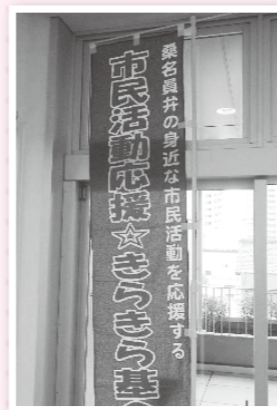 桑名員井の身近な市民活動を応援する
市民活動応援☆きらきら基